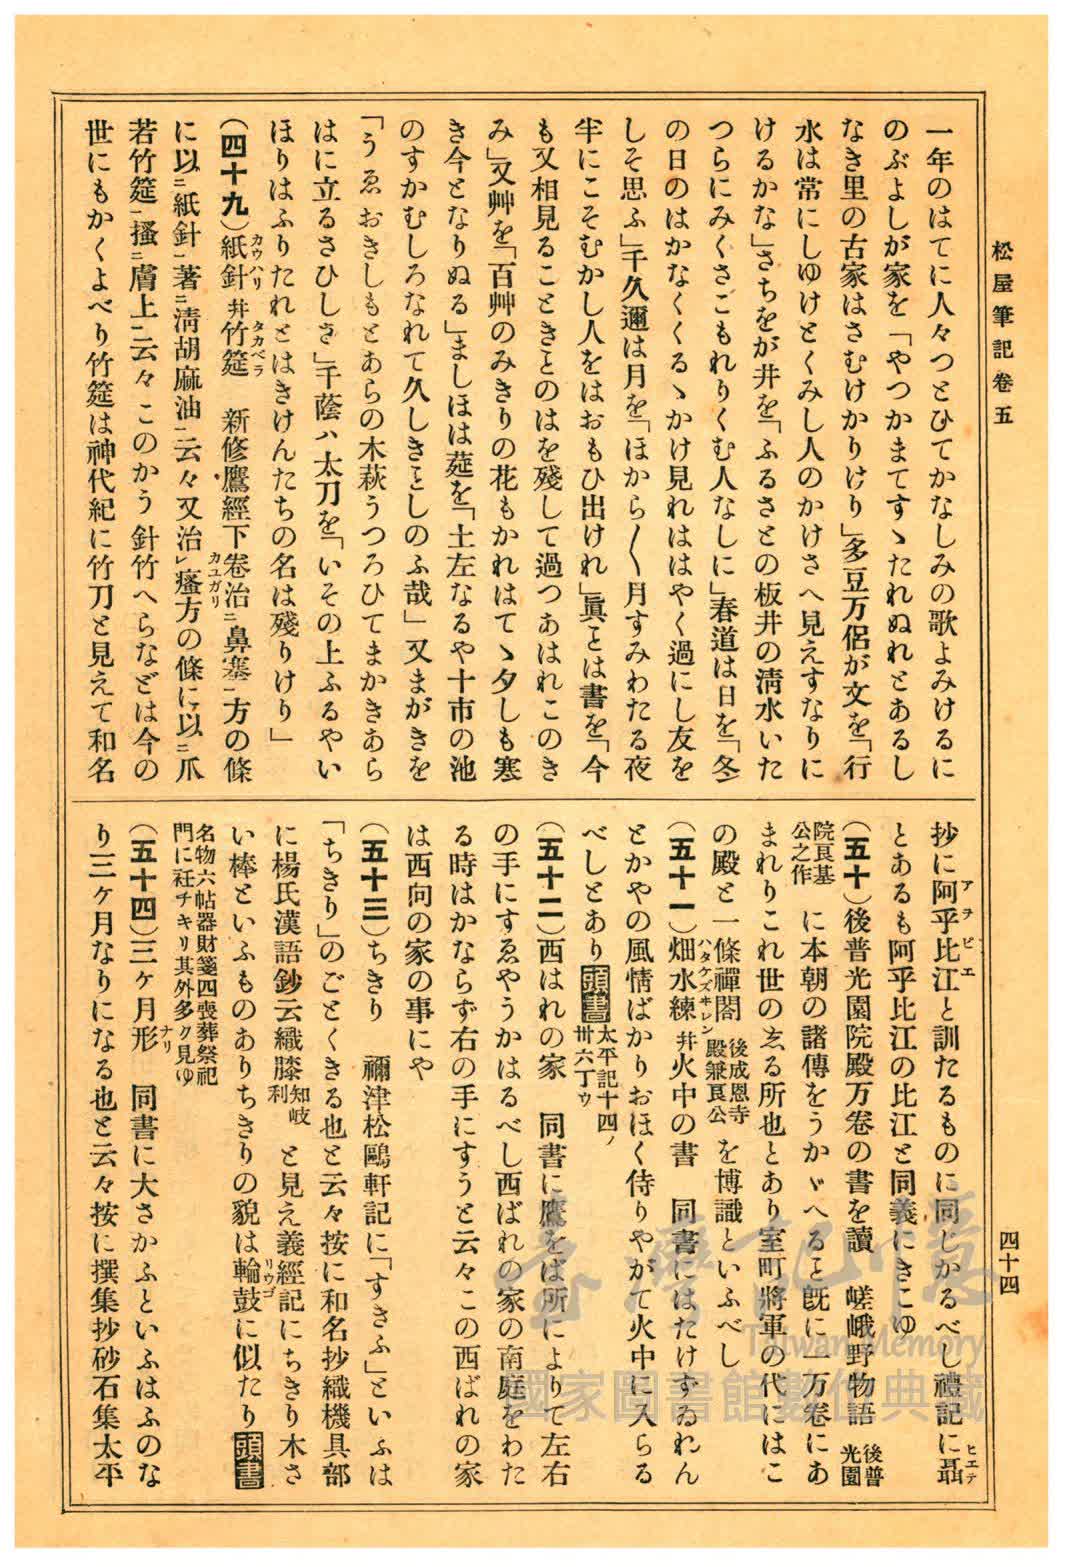 松屋筆記卷五
四十四
一年のはてに人々つとひてかなしみの歌よみけるに
のぶよしが家を「やつかまてすゝたれぬれとあるし
なき里の古家はさむけかりけり」多豆万侶が文を「行
水は常にしゆけとくみし人のかけさへ見えすなりに
けるかな」さちをが井を「ふるさとの板井の淸水いた
つらにみくさこもれりくむ人なしに」春道は日を「冬
の日のはかなくくるゝかけ見れははやく過にし友を
しそ思ふ」千久邇は月を「ほから〱月すみわたる夜
半にこそむかし人をはおもひ出けれ」眞とは書を「今
も又相見ることきとのはを殘して過つあはれこのき
み」又艸を「百艸のみきりの花もかれはてゝ夕しも寒
き今となりぬる」ましほは莚を「土左なるや十市の池
のすかむしろなれて久しきとしのふ哉」又まがきを
「うゑおきしもとあらの木萩うつろひてまかきあら
はに立るさひしさ」千蔭ハ太刀を「いその上ふるやい
ほりはふりたれとはきけんたちの名は殘りけり」
（四十九）紙針カウハリ幷竹篦タカベラ　新修鷹經下卷治ニ鼻塞一方の條
に以ニ紙針一著ニ淸胡麻油一云々又治レ瘙カユガリ方の條に以ニ爪
若竹篦一搔ニ膚上一云々このかう針竹へらなどは今の
世にもかくよべり竹篦は神代紀に竹刀と見えて和名
抄に阿乎比江アヲヒエと訓たるものに同じかるべし禮記に聶ヒエテ
とあるも阿乎比江の比江と同義にきこゆ
（五十）後普光園院殿万卷の書を讀　嵯峨野物語後普光園
院良基公之作に本朝の諸傳をうかゞへると旣に一万卷にあ
まれりこれ世のゑる所也とあり室町將軍の代にはこ
の殿と一條禪閤後成恩寺殿兼良公を博識といふべし
（五十一）畑水練ハタケズヰレン幷火中の書　同書にはたけずゐれん
とかやの風情ばかりおほく侍りやがて火中に入らる
べしとあり頭書太平記十四ノ卅六丁ウ
（五十二）西はれの家　同書に鷹をば所によりて左右
の手にすゑやうかはるべし西ばれの家の南庭をわた
る時はかならず右の手にすうと云々この西ばれの家
は西向の家の事にや
（五十三）ちきり　禰津松鷗軒記に「すきふ」といふは
「ちきり」のごとくきる也と云々按に和名抄織機具部
に楊氏漢語鈔云織膝知岐利と見え義經記にちきり木さ
い棒といふものありちきりの貌は輪鼓リウゴに似たり頭書
名物六帖器財箋四喪葬祭祀門に衽チキリ其外多ク見ゆ
（五十四）三ヶ月形ナリ　同書に大さかふといふはふのな
り三ヶ月なりになる也と云々按に撰集抄砂石集太平
臺灣記憶
Taiwan Memory
國家圖書館數位典藏